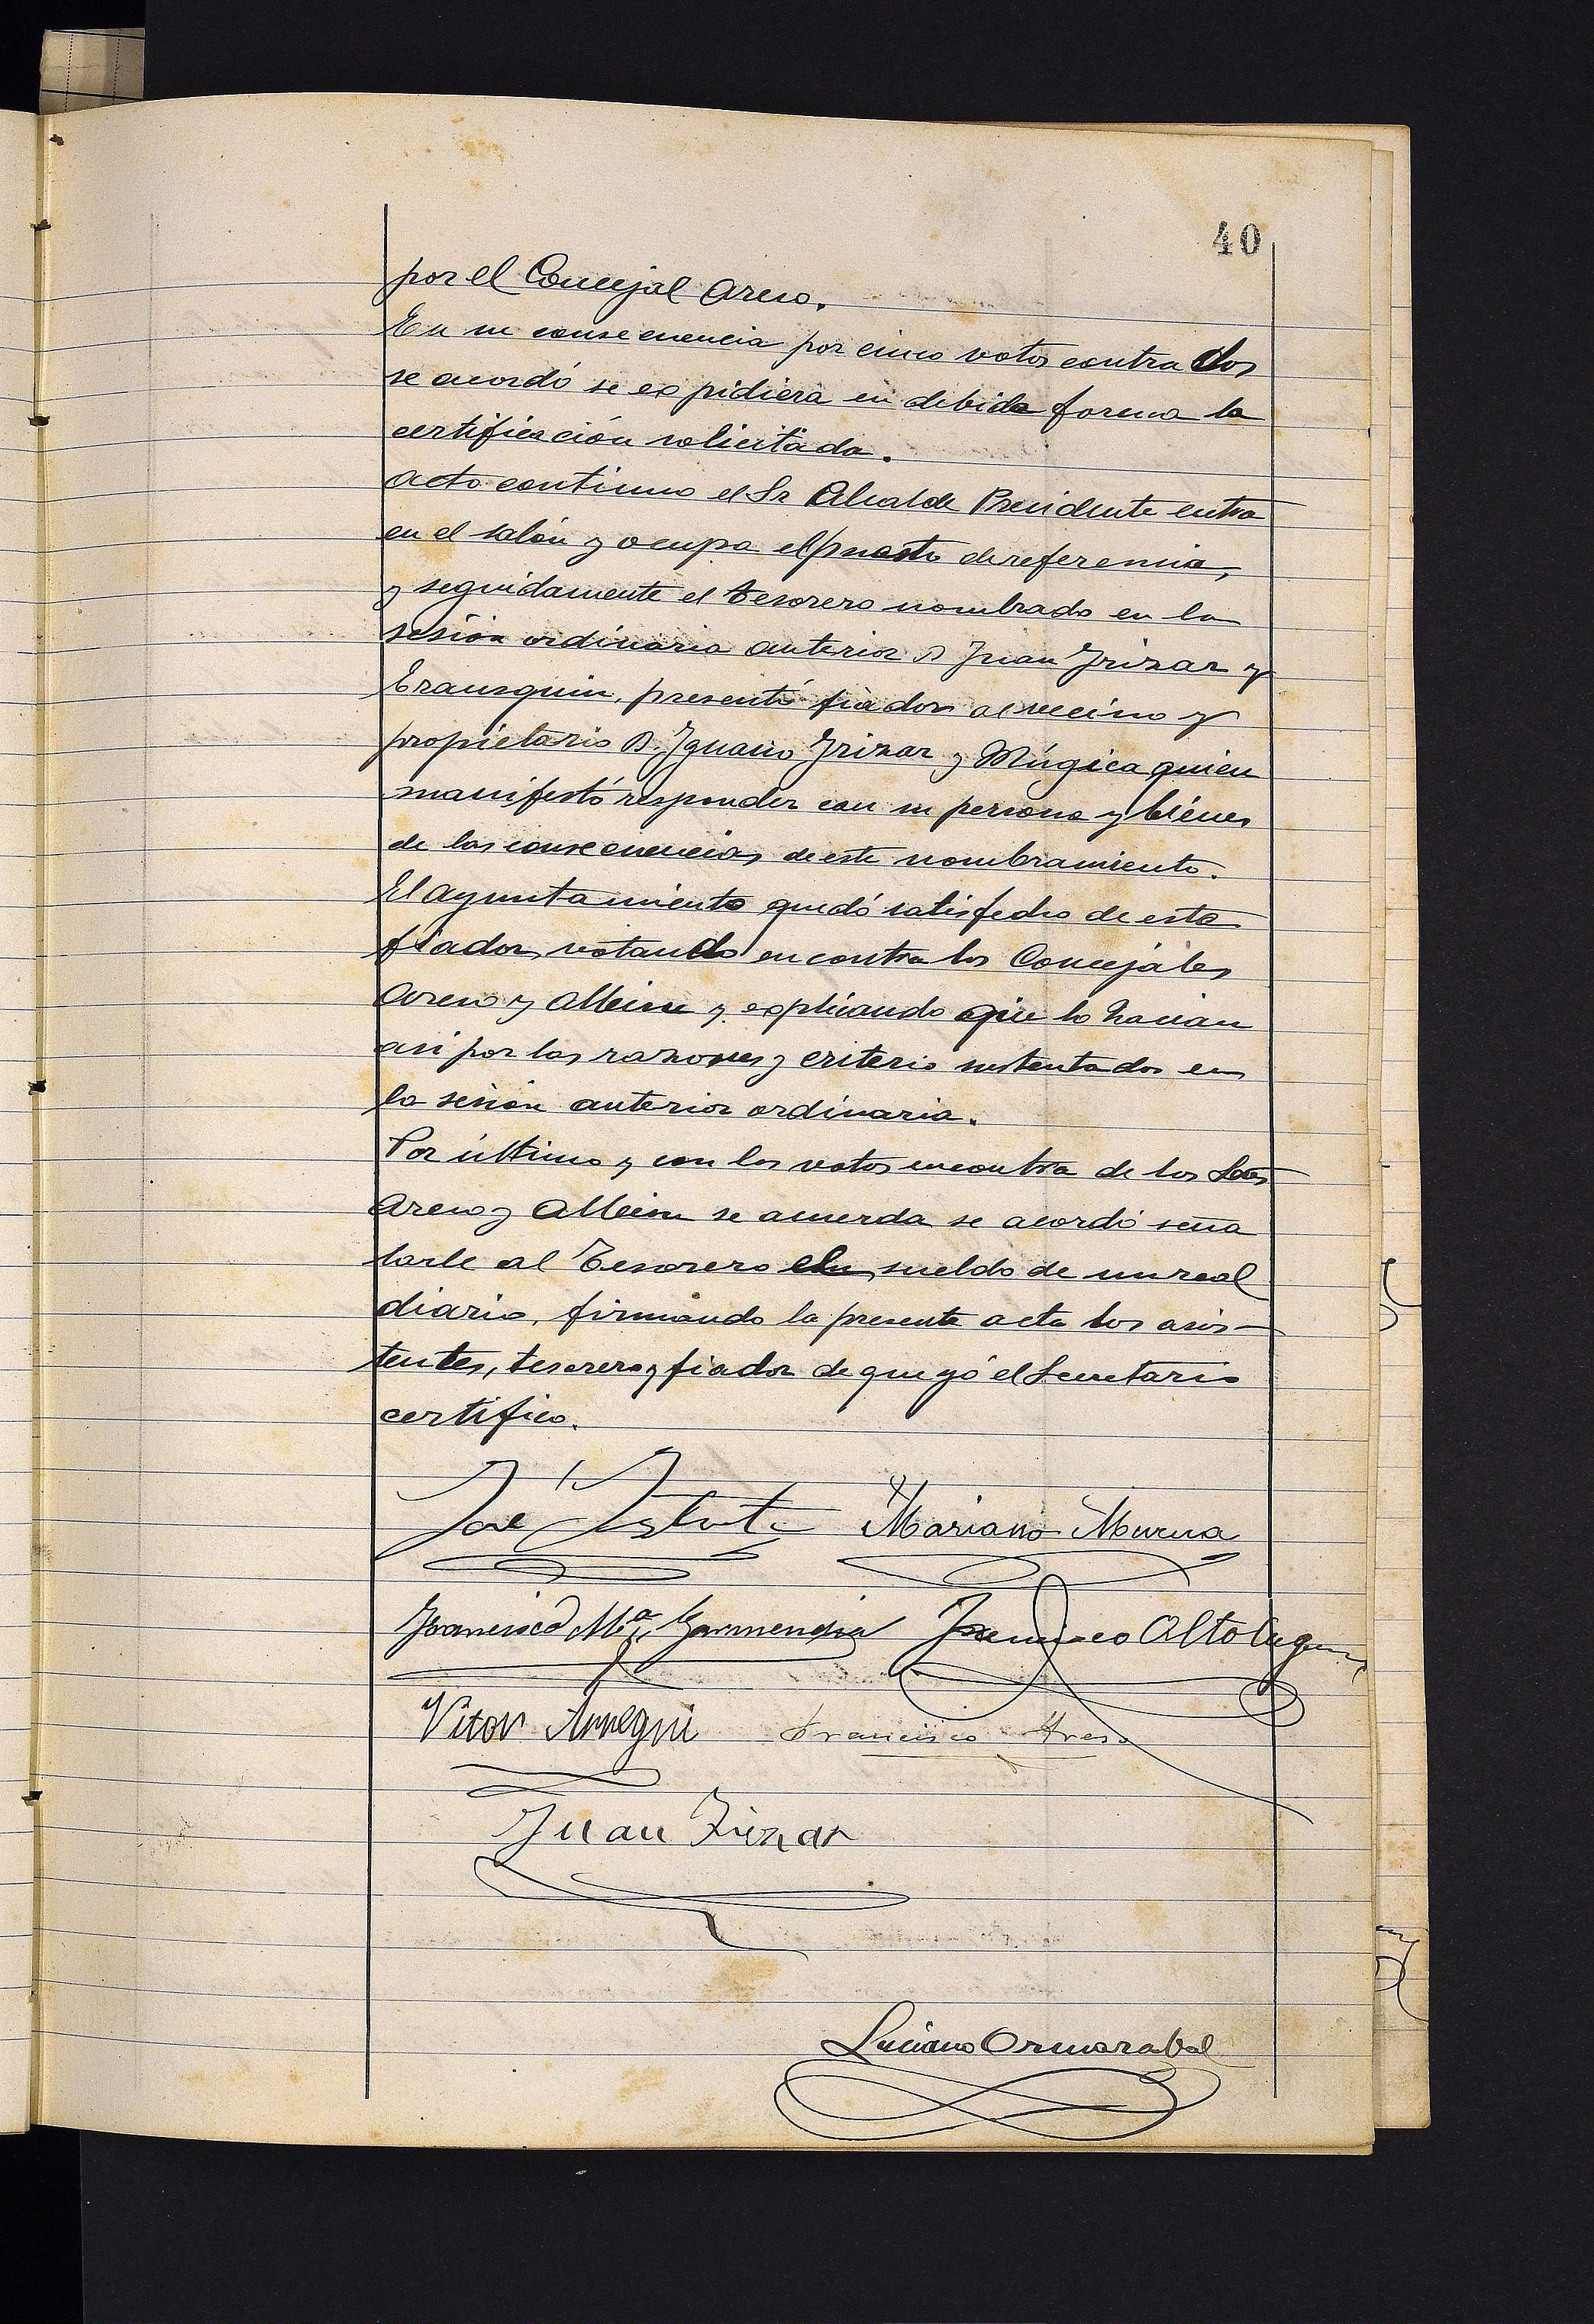 40
por el Concejal Areso.
En su consecuencia por cinco votos contra dos
se acordó se expidiera en debida forma la
certificación solicitada.
Acto continuo el Sr Alcalde Presidente entra
en el salón y ocupa el puesto de referencia,
y seguidamente el tesorero nombrado en la
sesión ordinaria anterior D Juan Irizar y
Erausquin, presentó fiador al vecino y
propietario D. Ignacio Irizar y Múgica quien
manifestó responder con su persona y bienes
de las consecuencias de este nombramiento.
El Ayuntamiento quedó satisfecho de este
fiador, votando en contra los Concejales
Areso y Albisu y explicando que lo hacian
asi por las razones y criterio sustentados en
la sesión anterior ordinaria.
Por último y con los votos en contra de los Sres
Areso y Albisu se acuerda se acordó seña
larle al Tesorero el sueldo de un real
diario, firmando la presente acta los asis-
tentes, tesorero y fiador de que yó el Secretario
certifico.
José Mariano Murua
Francisco Mª Garmendia Francisco Altolaguirre
Vitor Aunegui Francisco Areso
Juan Irizar
Luciano Ormazabal